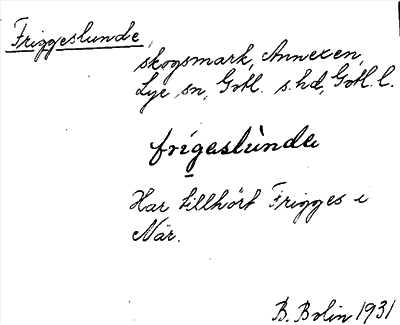 Friggeslunde,
skogsmark, Annexen,
Lye sn, Gotl. s. hd, Gotl. l.
frígeslùnda
Har tillhört Frigges i
När.
B. Bolin 1931